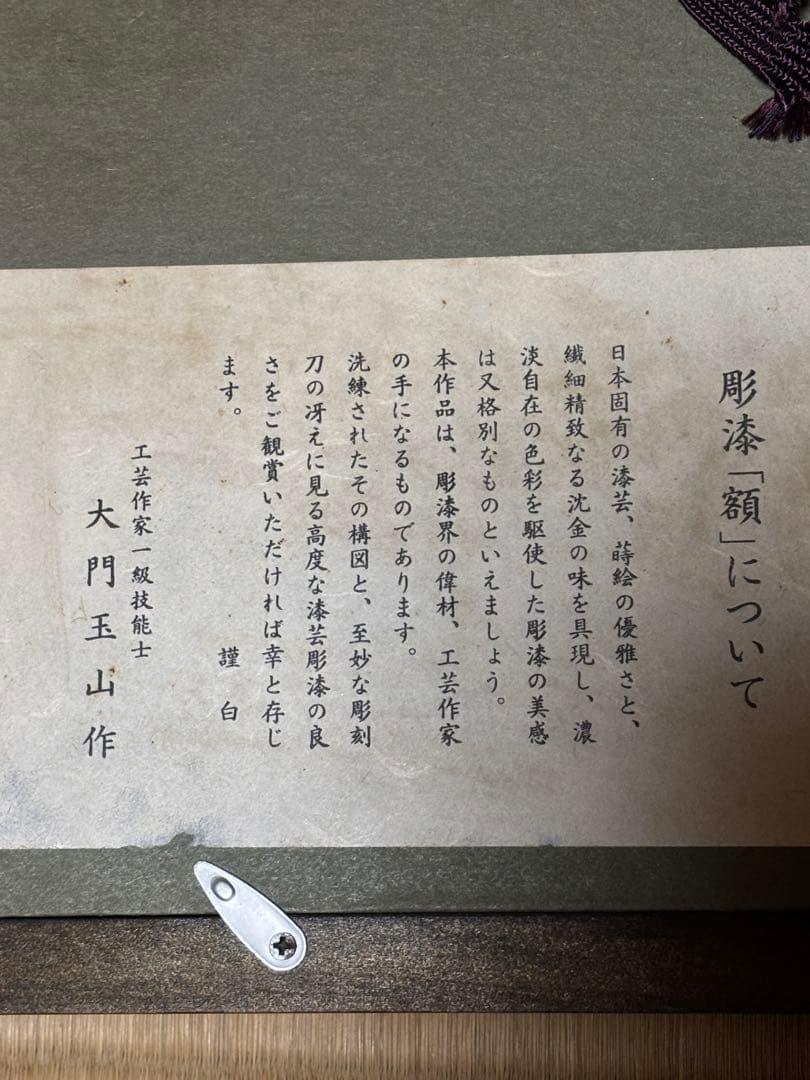 彫漆「額」について
日本固有の漆芸、蒔絵の優雅さと、
繊細精致なる沈金の味を具現し、濃
淡自在の色彩を駆使した彫漆の美感
は又格別なものといえましょう。
本作品は、彫漆界の偉材、工芸作家
の手になるものであります。
洗練されたその構図と、至妙な彫刻
刀の冴えに見る高度な漆芸彫漆の良
さをご観賞いただければ幸と存じ
ます。
謹白
工芸作家一級技能士
大門玉山作